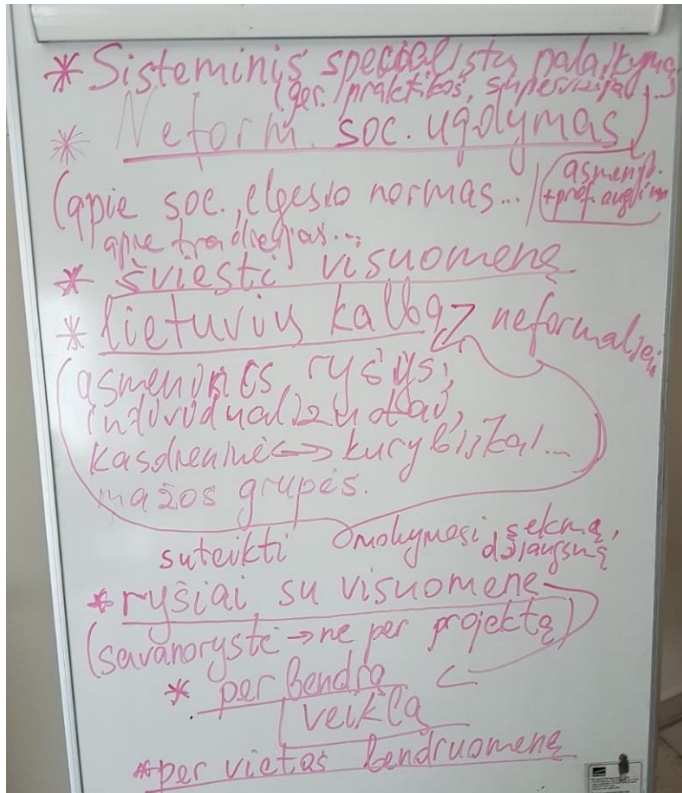 * Sisteminis specialistų palaikymas
(ger. praktikos, supervizija...)
* Neform. soc. ugdymas
(apie soc., elgesio normas... / asmenyb.
+ prof. augimo
apie tradicijas...
* šviesti visuomenę
* lietuvių kalba neformaliai
(asmeninis ryšys,
individualizuotai,
kasdieninė <-> kūrybiškai...
mažos grupės.
suteikti mokymosi sėkmę,
džiaugsmą
* ryšiai su visuomene
(savanorystė → ne per projektą)
* per bendrą
veiklą
* per vietos bendruomenę